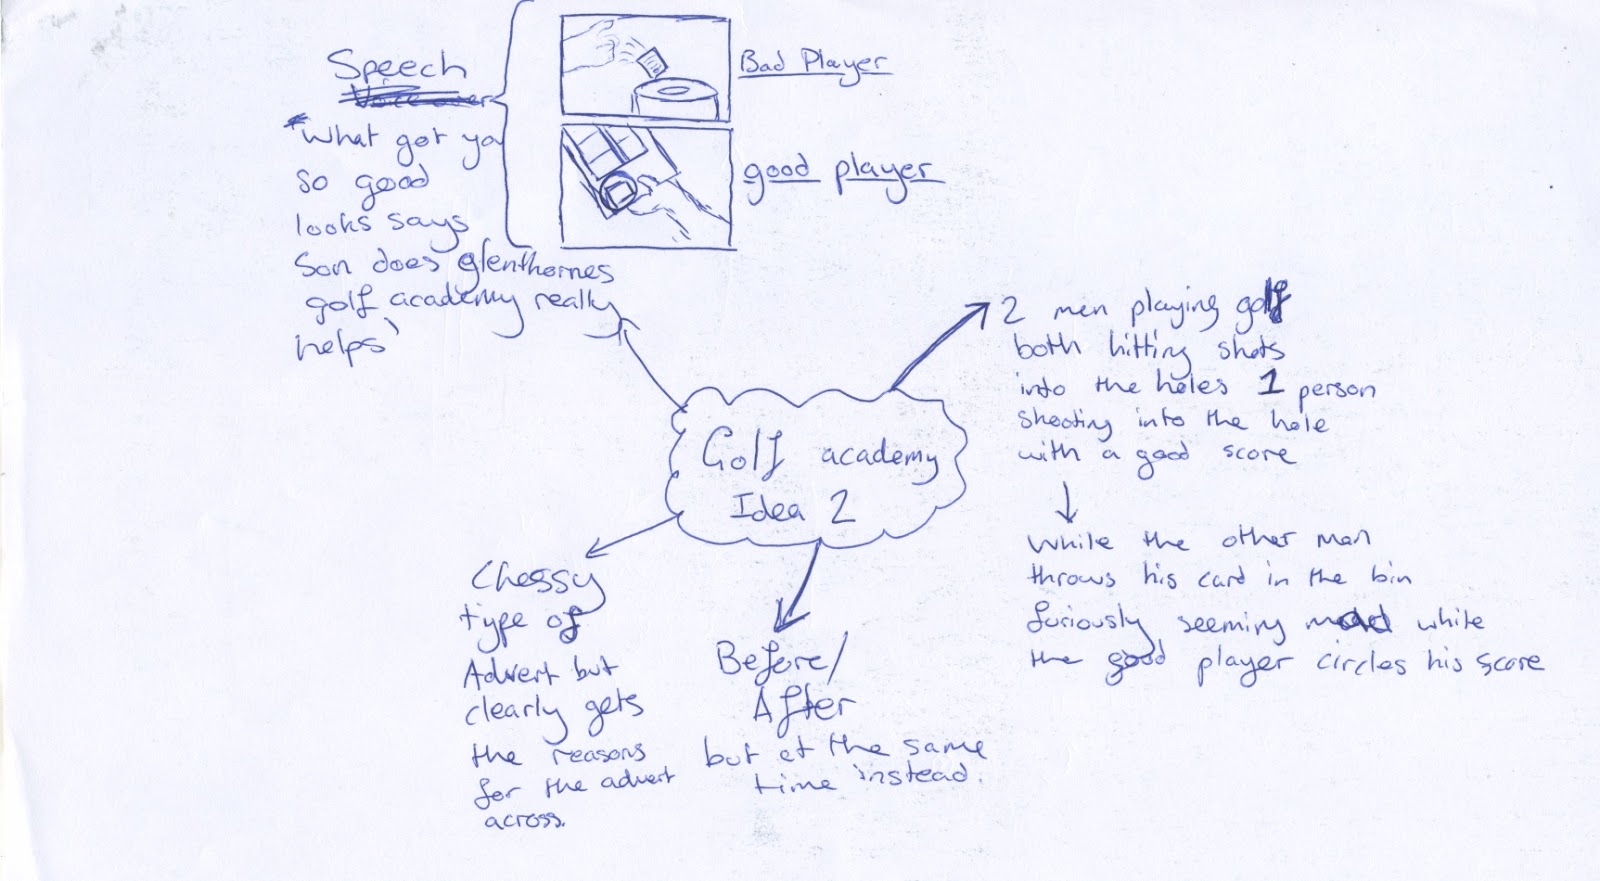 Speech
Voice over
"What got you
so good
looks says
Son does glenthornes
golf academy really
helps"
Bad Player
good player
2 men playing golf
both hitting shots
into the holes 1 person
shooting into the hole
with a good score
While the other man
throws his card in the bin
furiously seeming mad while
the good player circles his score
Golf academy
Idea 2
Chessy
type of
Advert but
clearly gets
the reasons
for the advert
across.
Before/
After
but at the same
time instead.